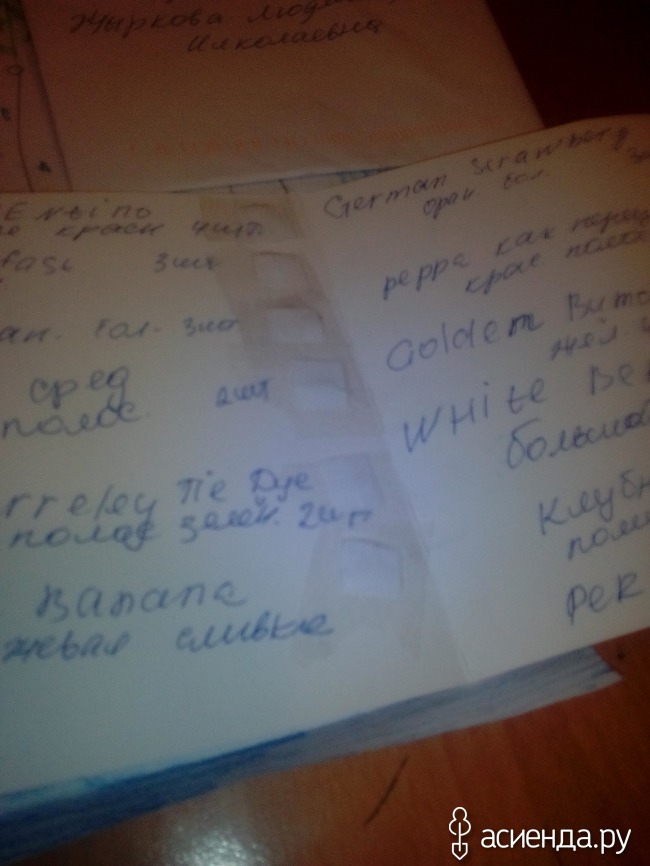 Жыркова Людм
Николаевна
е красн 4шт
fasi 3шт
ан. Гол. 3шт
сред
полос. 2шт
rreley Tie Dye
полос зелен. 2шт
Banana
жевая сливка
German Strawberry
оран Гол.
peppe как перец
крас полос
Goldem
жёл
WHite Be
большо
Клубн
поли
Per
асиенда.ру